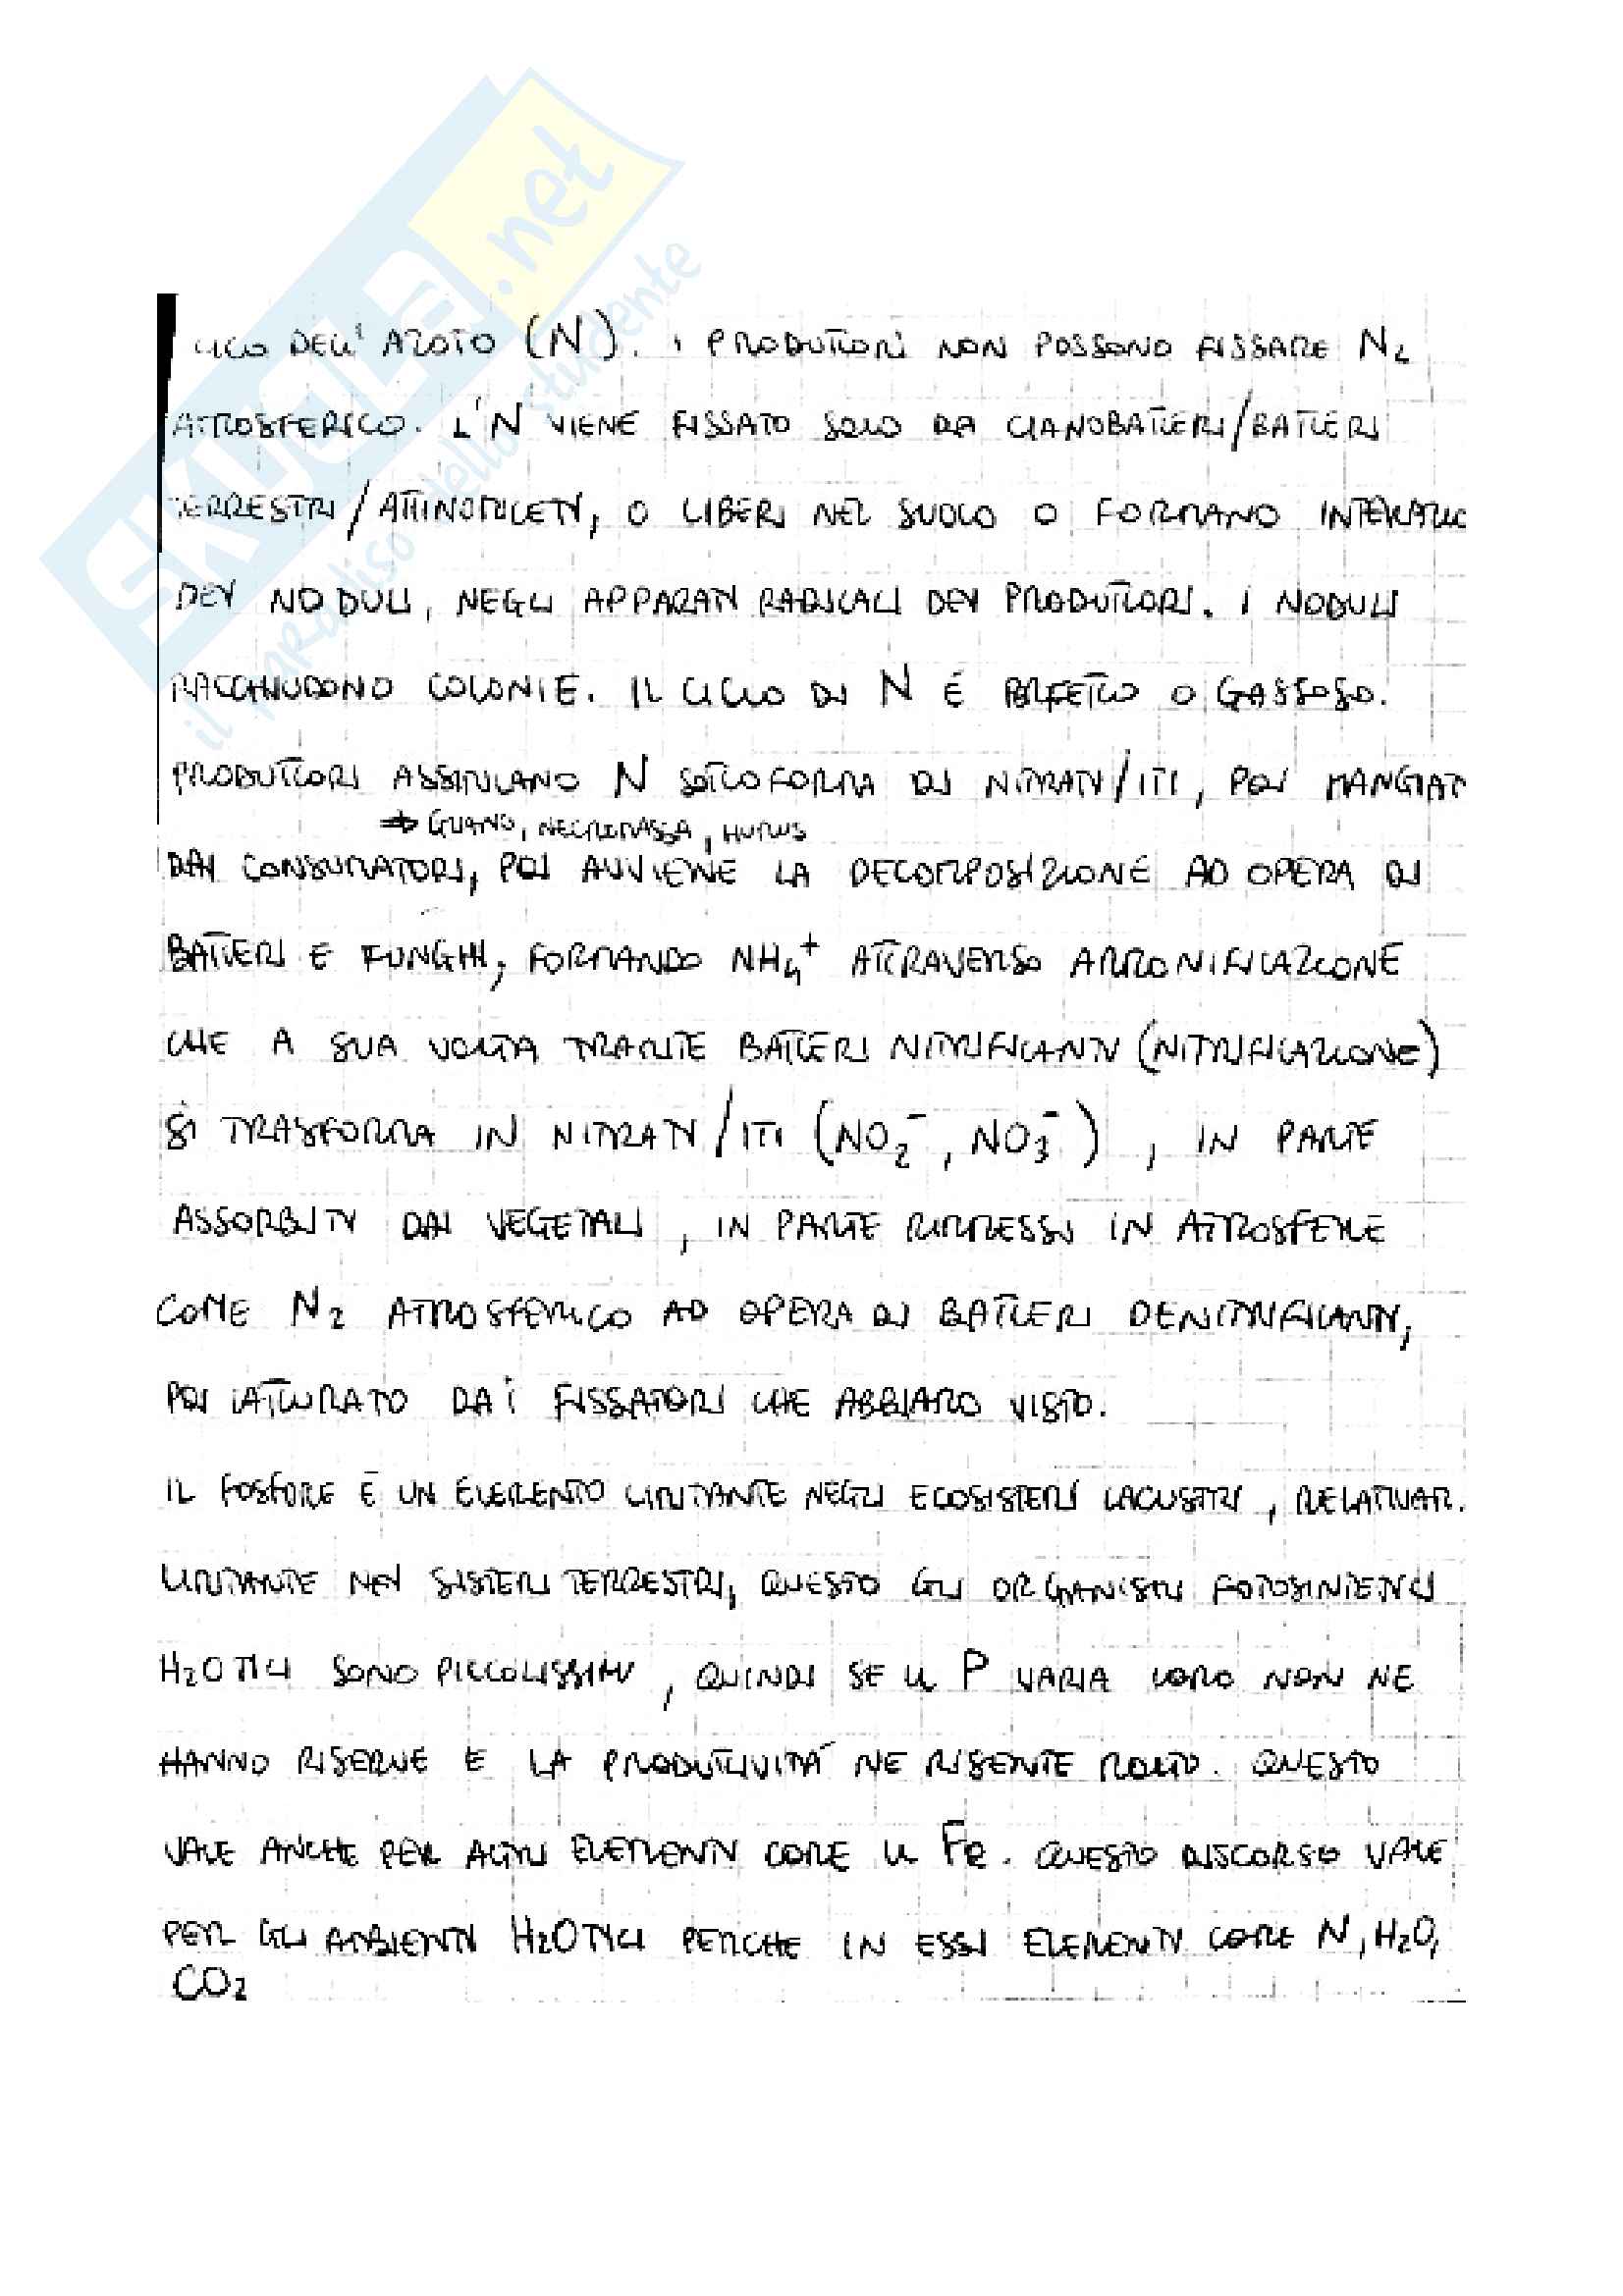 SKUOLA.net
il paradiso dello studente
CICLO DELL'AZOTO (N). I PRODUTTORI NON POSSONO FISSARE N2
ATMOSFERICO. L'N VIENE FISSATO SOLO DA CIANOBATTERI/BATTERI
TERRESTRI/ATTINOMICETI, O LIBERI NEL SUOLO O FORMANO
DEI NODULI, NEGLI APPARATI RADICALI DEI PRODUTTORI. I NODULI
RACCHIUDONO COLONIE. IL CICLO DI N É PERFETTO O GASSOSO.
PRODUTTORI ASSIMILANO N SOTTOFORMA DI NITRATI/ITI, POI MANGIATI
⇒ GUANO, NECROMASSA, HUMUS
DAI CONSUMATORI, POI AVVIENE LA DECOMPOSIZIONE AD OPERA DI
BATTERI E FUNGHI, FORMANDO NH4+ ATTRAVERSO AMMONIFICAZIONE
CHE A SUA VOLTA TRAMITE BATTERI NITRIFICANTI (NITRIFICAZIONE)
SI TRASFORMA IN NITRATI/ITI (NO2-, NO3-), IN PARTE
ASSORBITI DAI VEGETALI, IN PARTE RIMMESSI IN ATMOSFERE
COME N2 ATMOSFERICO AD OPERA DI BATTERI DENITRIFICANTI,
POI CATTURATO DAI FISSATORI CHE ABBIAMO VISTO.
IL FOSFORE É UN ELEMENTO LIMITANTE NEGLI ECOSISTEMI LACUSTRI, RELATIVAM.
LIMITANTE NEI SISTEMI TERRESTRI, QUESTO GLI ORGANISMI FOTOSINTETICI
H2OTICI SONO PICCOLISSIMI, QUINDI SE IL P VARIA LORO NON NE
HANNO RISERVE E LA PRODUTTIVITÁ NE RISENTE MOLTO. QUESTO
VALE ANCHE PER ALTRI ELEMENTI COME IL Fe. QUESTO DISCORSO VALE
PER GLI AMBIENTI H2OTICI PERCHE IN ESSI ELEMENTI COME N, H2O,
CO2